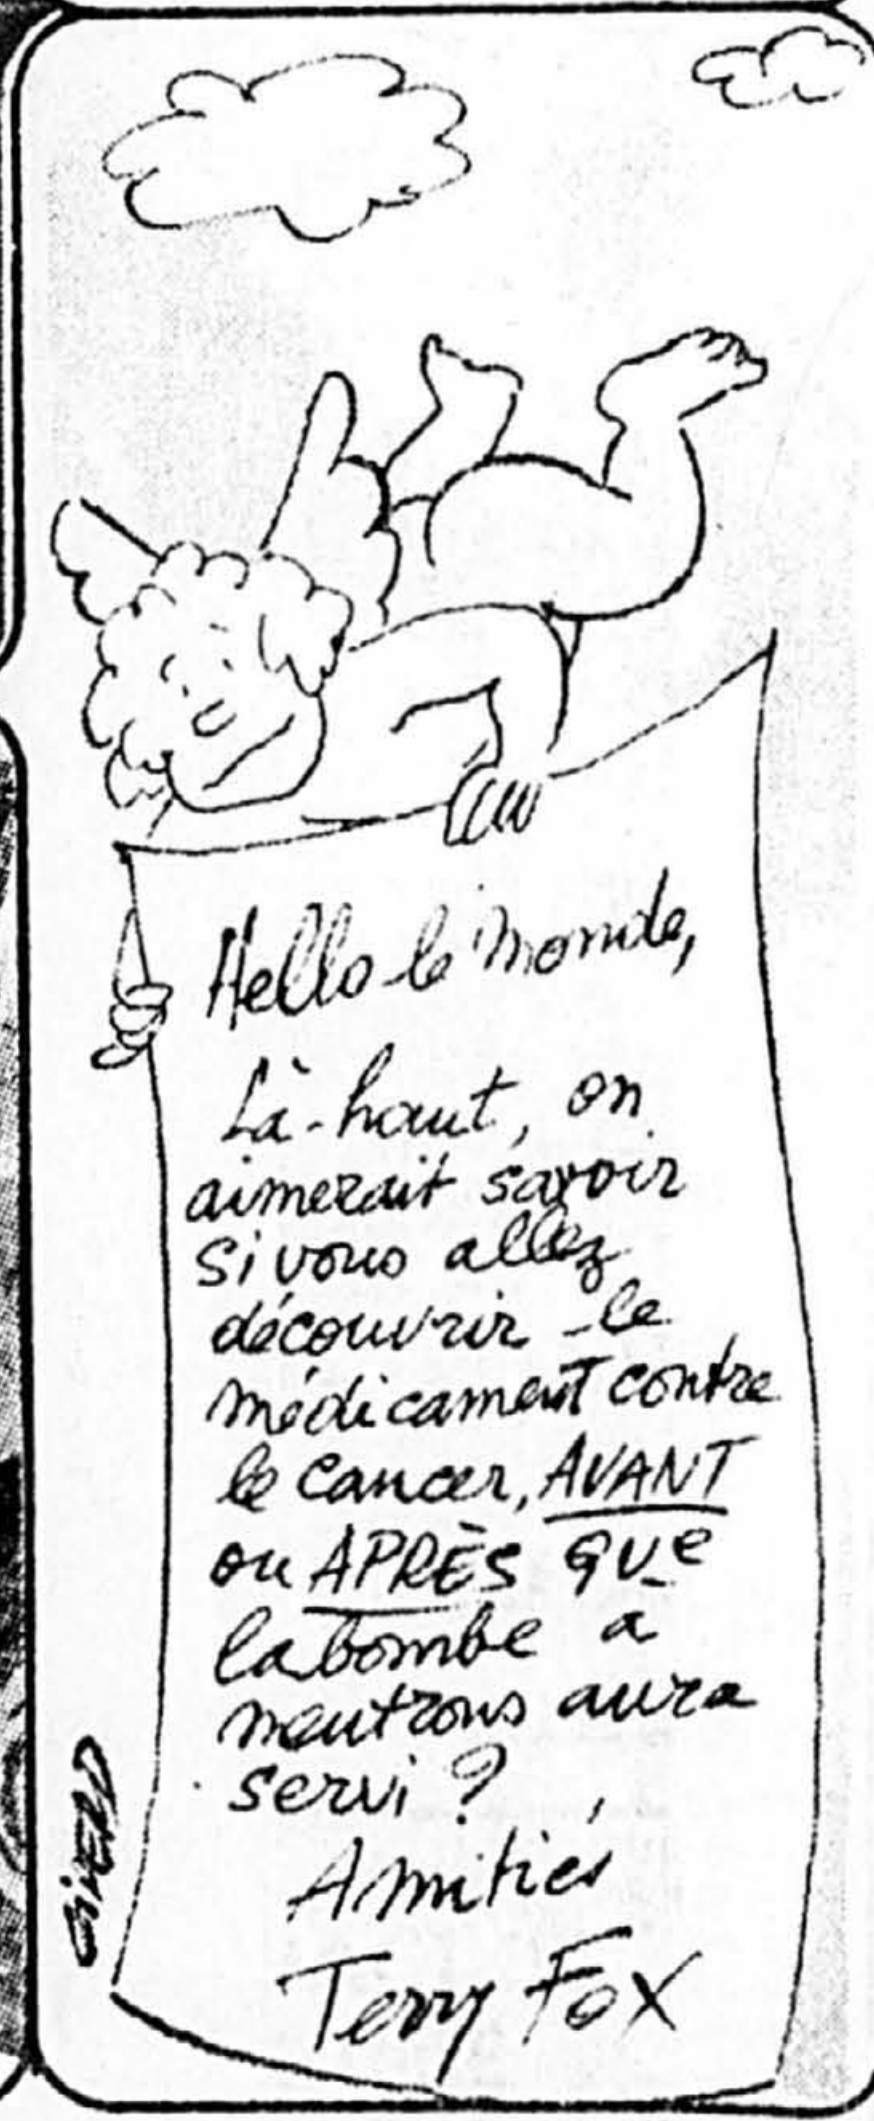 Hello le monde,
Là-haut, on
aimerait savoir
si vous allez
découvrir le
médicament contre
le cancer, AVANT
ou APRÈS que
la bombe à
neutrons aura
servi ?
Amitiés
Terry Fox